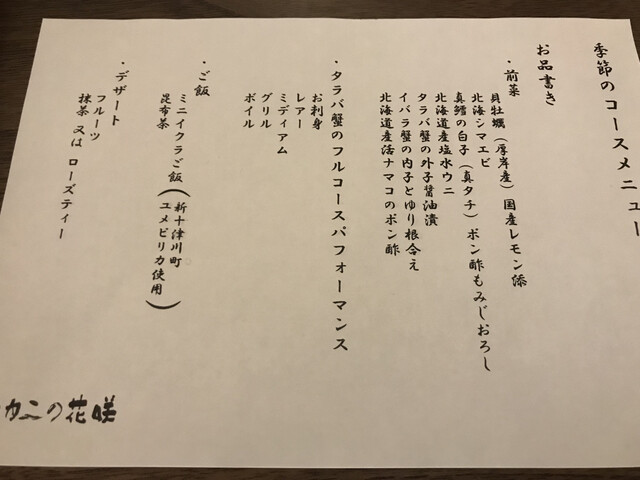 季節のコースメニュー
お品書き
・前菜
貝牡蠣(厚岸産)国産レモン添
北海シマエビ
真鱈の白子(真タチ)ポン酢もみじおろし
北海道産塩水ウニ
タラバ蟹の外子醤油漬
イバラ蟹の内子とゆり根合え
北海道産活ナマコのポン酢
・タラバ蟹のフルコースパフォーマンス
お刺身
レアー
ミディアム
グリル
ボイル
・ご飯
ミニイクラご飯(新十津川町ユメピリカ使用)
昆布茶
・デザート
フルーツ
抹茶 又は ローズティー
カニの花咲